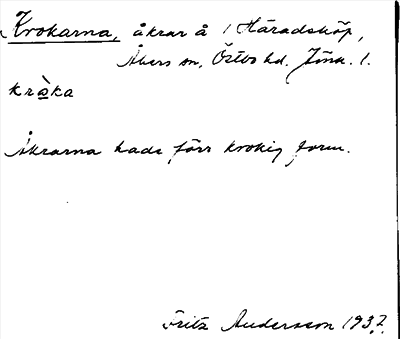 Krokarna, åkrar å 1 Häradsköp,
Åkers sn, Östbo hd. Jönk. l.
kråka
Åkrarna hade förr krokig form.
Fritz Andersson 1932.